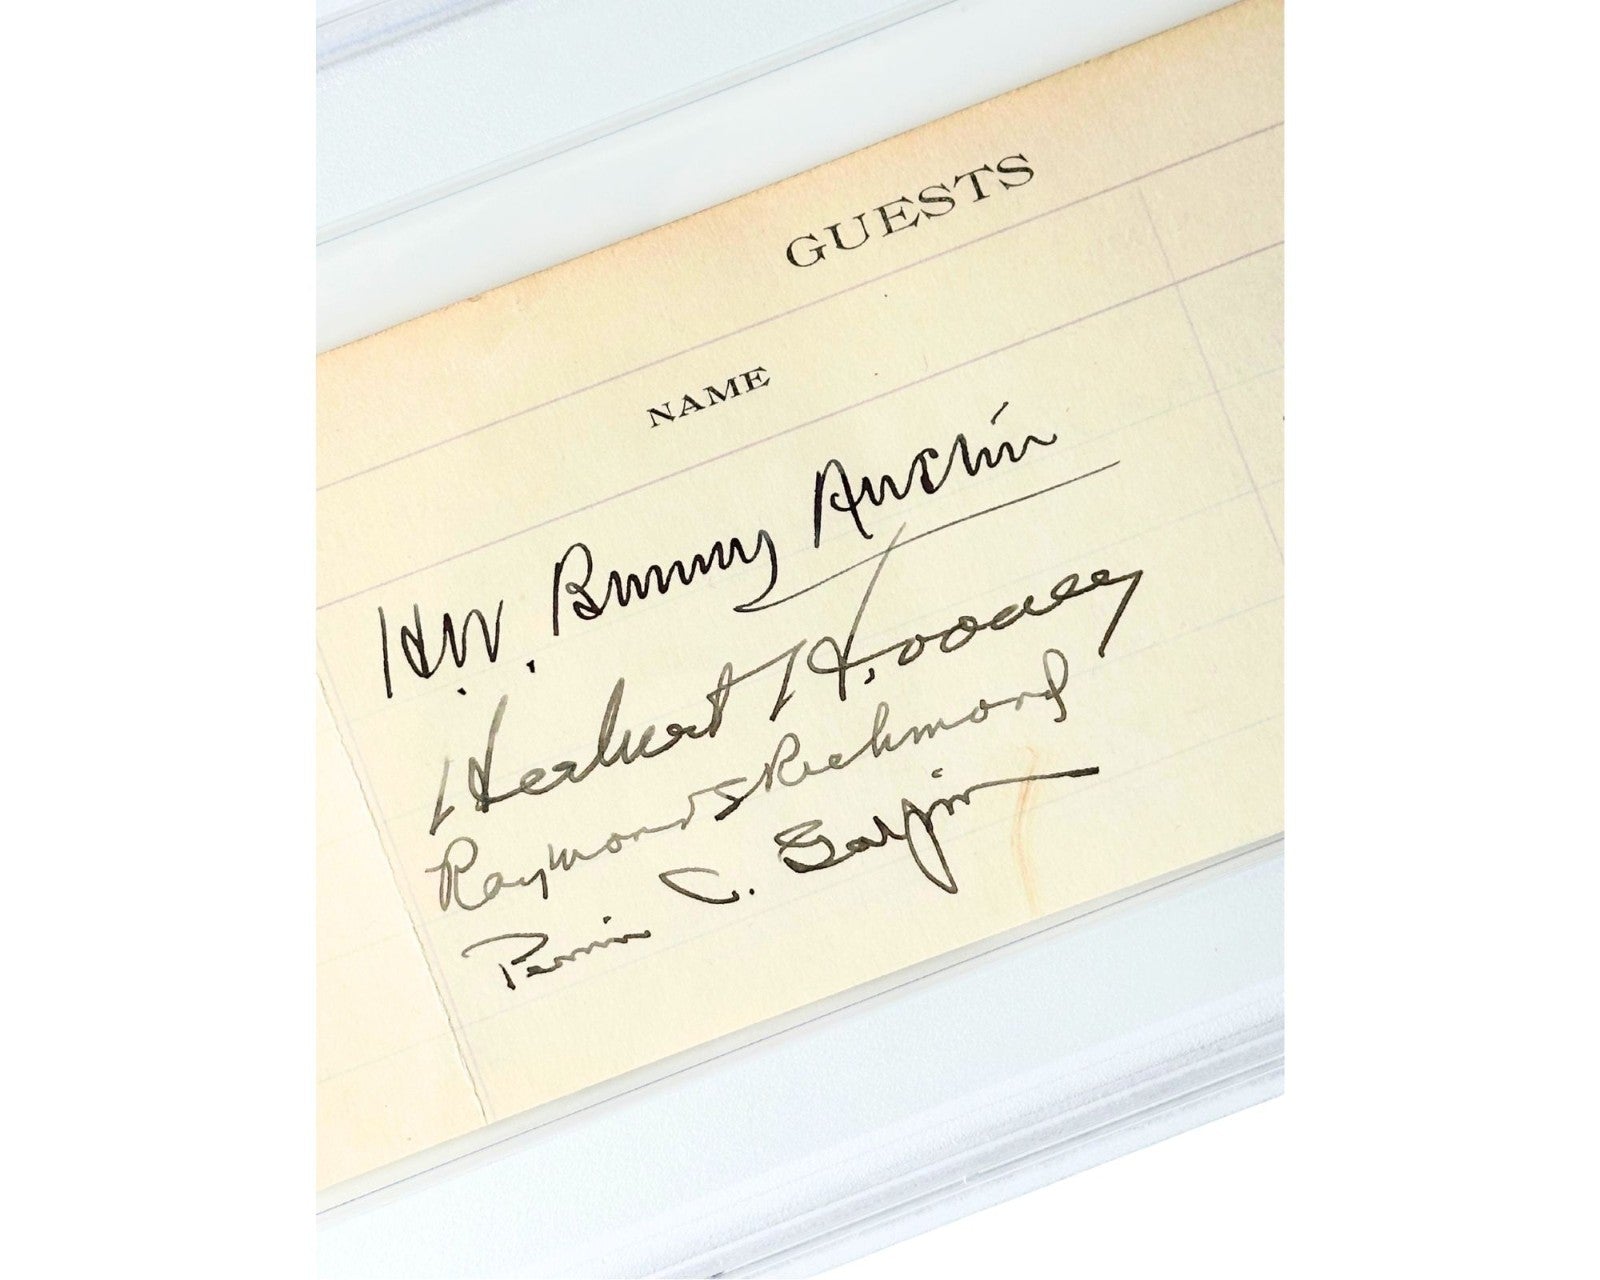 GUESTS
NAME
H.W. Bunny Austin
Herbert H. Woolley
Raymond S Richmond
Perrin C. Galpin